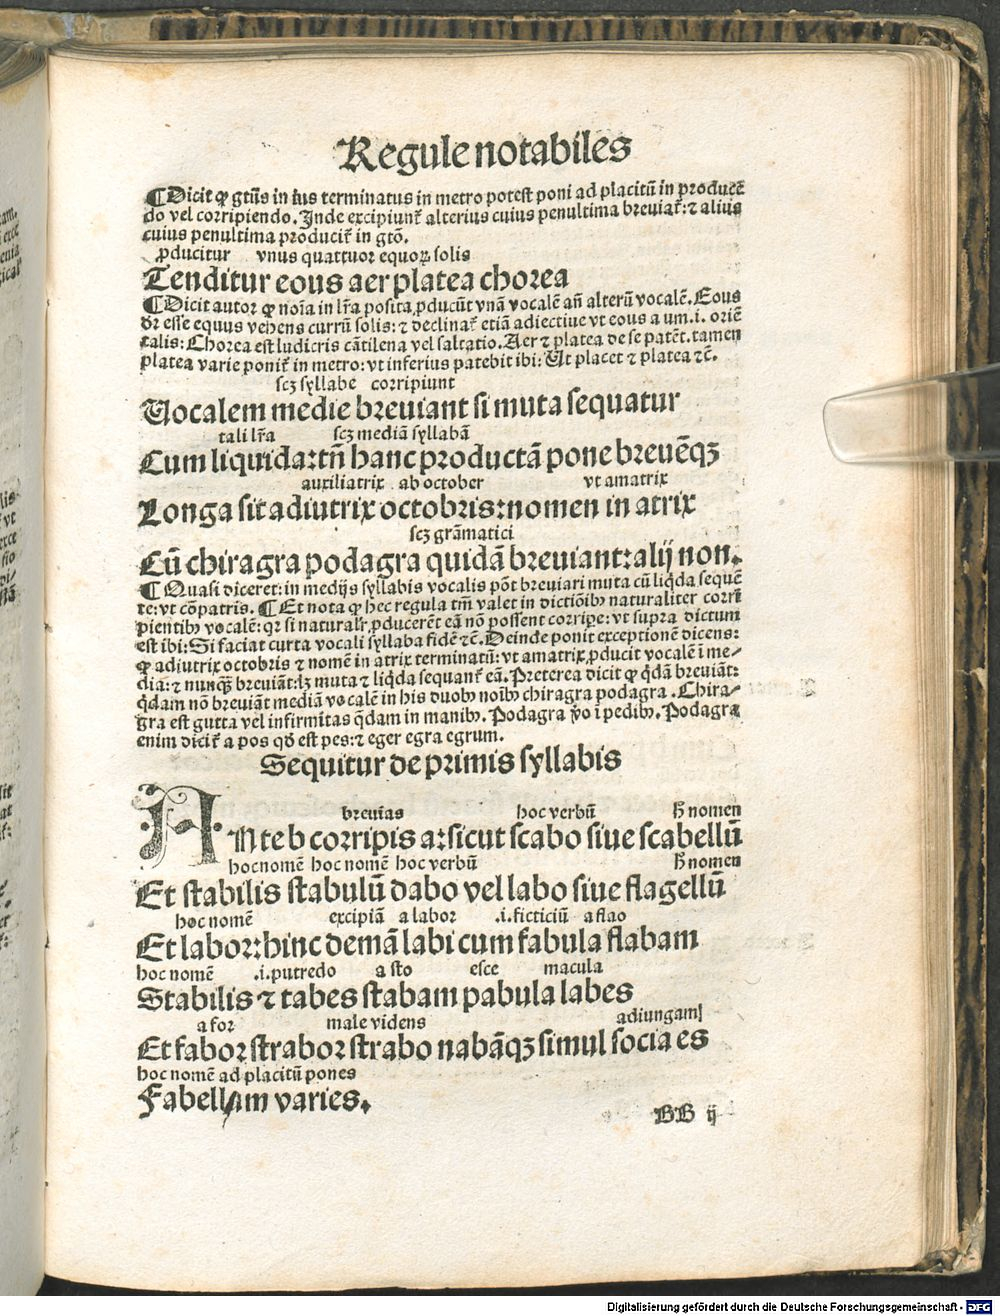 Regule notabiles
¶Dicit ꝙ gtīs in ius terminatus in metro potest poni ad placitū in producē
do vel corripiendo. Inde excipiunt᷑ alterius cuius penultima breuiat᷑: ⁊ alius
cuius penultima producit᷑ in gtō.
ꝓducitur vnus quattuor equoꝝ solis
Tenditur eous aer platea chorea
¶Dicit autor ꝙ noīa in lr̄a posita ꝓducūt vnā vocalē añ alterū vocalē. Eous
dr̄ esse equus vehens currū solis: ⁊ declinat᷑ etiā adiectiue vt eous a um .i. oriē
talis: Chorea est ludicris cātilena vel saltatio. Aer ⁊ platea de se patēt. tamen
platea varie ponit᷑ in metro: vt inferius patebit ibi: Ut placet ⁊ platea ⁊c̄.
scꝫ syllabe corripiunt
Uocalem medie breuiant si muta sequatur
tali lr̄a scꝫ mediā syllabā
Cum liquida: tn̄ hanc productā pone breuēqꝫ
auxiliatrix ab october vt amatrix
Longa sit adiutrix octobris: nomen in atrix
scꝫ grāmatici
Cū chiragra podagra quidā breuiant: alij non.
¶Quasi diceret: in medijs syllabis vocalis pōt breuiari muta cū liqda sequē
te: vt cōpatris. ¶Et nota ꝙ hec regula tm̄ valet in dictiōibꝰ naturaliter corri
pientibꝰ vocalē: qꝛ si naturalr̄ ꝓducerēt eā nō possent corripe: vt supra dictum
est ibi: Si faciat curta vocali syllaba fidē ⁊c̄. Deinde ponit exceptionē dicens:
ꝙ adiutrix octobris ⁊ nomē in atrix terminatū: vt amatrix ꝓducit vocalē ī me⸗
dia: ⁊ nunqꝫ breuiāt: lꝫ muta ⁊ liqda sequant᷑ eā. Preterea dicit ꝙ qdā breuiāt:
qdam nō breuiāt mediā vocalē in his duobꝰ noībꝰ chiragra podagra. Chira⸗
gra est gutta vel infirmitas qdam in manibꝰ. Podagra ꝟo ī pedibꝰ. Podagra
enim dicit᷑ a pos qd̄ est pes: ⁊ eger egra egrum.
Sequitur de primis syllabis
breuias hoc verbū h̄ nomen
ANte b corripis a: sicut scabo siue scabellū
hoc nomē hoc nomē hoc verbū h̄ nomen
Et stabilis stabulū dabo vel labo siue flagellū
hoc nomē excipiā a labor .i. ficticiū a flao
Et labor: hinc demā labi cum fabula flabam
hoc nomē .i. putredo a sto esce macula
Stabilis ⁊ tabes stabam pabula labes
a for male videns adiungam
Et fabor strabor strabo nabāqꝫ simul socia es
hoc nomē ad placitū pones
Fabellam varies.
BB ij
Digitalisierung gefördert durch die Deutsche Forschungsgemeinschaft - DFG